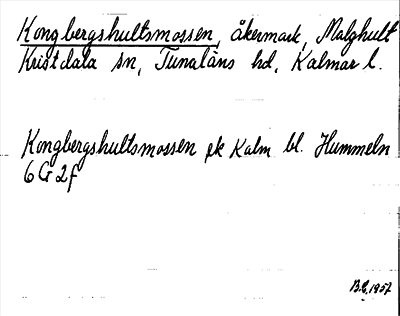 Kongbergshultsmossen, åkermark, Malghult
Kristdala sn, Tunaläns hd, Kalmar l.
Kongbergshultsmossen ek Kalm bl. Hummeln
6 G 2 f
B.E. 1957